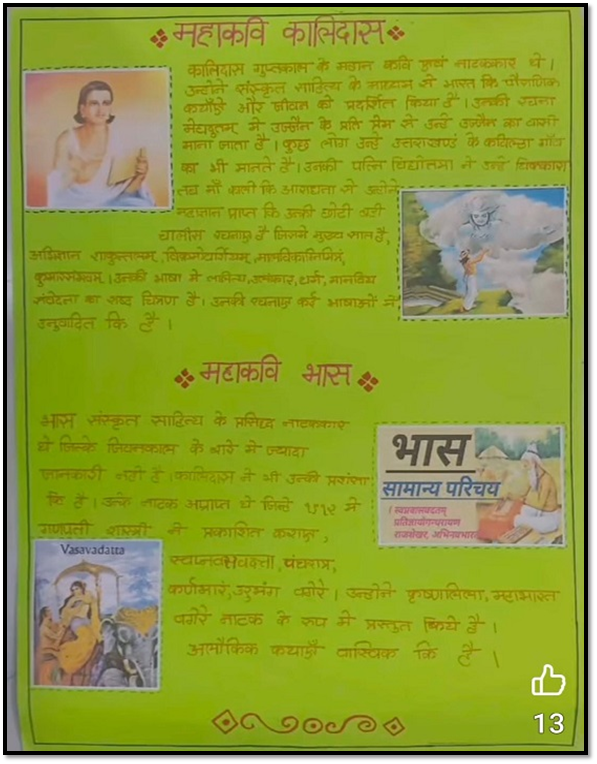 महाकवि कालिदास
कालिदास गुप्तकाल के महान कवि एवं नाटककार थे।
उन्होने संस्कृत साहित्य के माध्यम से भारत कि पौराणिक
कथाएँ और जीवन को प्रदर्शित किया है। उनकी रचना
मेघदूतम् में उज्जैन के प्रति प्रेम से उन्हे उज्जैन का वासी
माना जाता है। कुछ लोग उन्हे उत्तराखण्ड के कविल्ठा गाँव
का भी मानते है। उनकी पत्नि विद्योतमा ने उन्हे धिक्कारा
तब माँ काली कि आराधना से उन्होने
प्राप्त कि उनकी छोटी बडी
चालीस रचनाए है जिसमे मुख्य सात है,
अभिज्ञान शाकुन्तलम्, विक्रमोवर्शियम्, मालविकाग्निमित्रं,
कुमारसंभवम्। उनकी भाषा मे लालित्य, अलंकार, धर्म, मानविय
संवेदना का चित्रण है। उनकी रचनाए कई भाषाओं में
अनुवादित कि है।
महाकवि भास
भास संस्कृत साहित्य के प्रसिद्ध नाटककार
थे जिनके जिवनकाल के बारे मे ज्यादा
जानकारी नही है। कालिदास ने भी उनकी प्रशंसा
कि है। उनके नाटक अप्राप्त थे जिन्हे १९१२ मे
गणपती शास्त्री ने प्रकाशित कराए,
स्वप्नवासवदत्ता, पंचरात्र,
कर्णभारं, उरुभंग वगेरे। उन्होने कृष्णलिला, महाभारत
वगेरे नाटक के रूप मे प्रस्तुत किये है।
अलौकिक कथाएँ वास्तविक कि है।
भास
सामान्य परिचय
स्वप्नवासवदतम्
प्रतिज्ञायौगन्धरायण
राजशेखर, अभिनवभारत
Vasavadatta
13